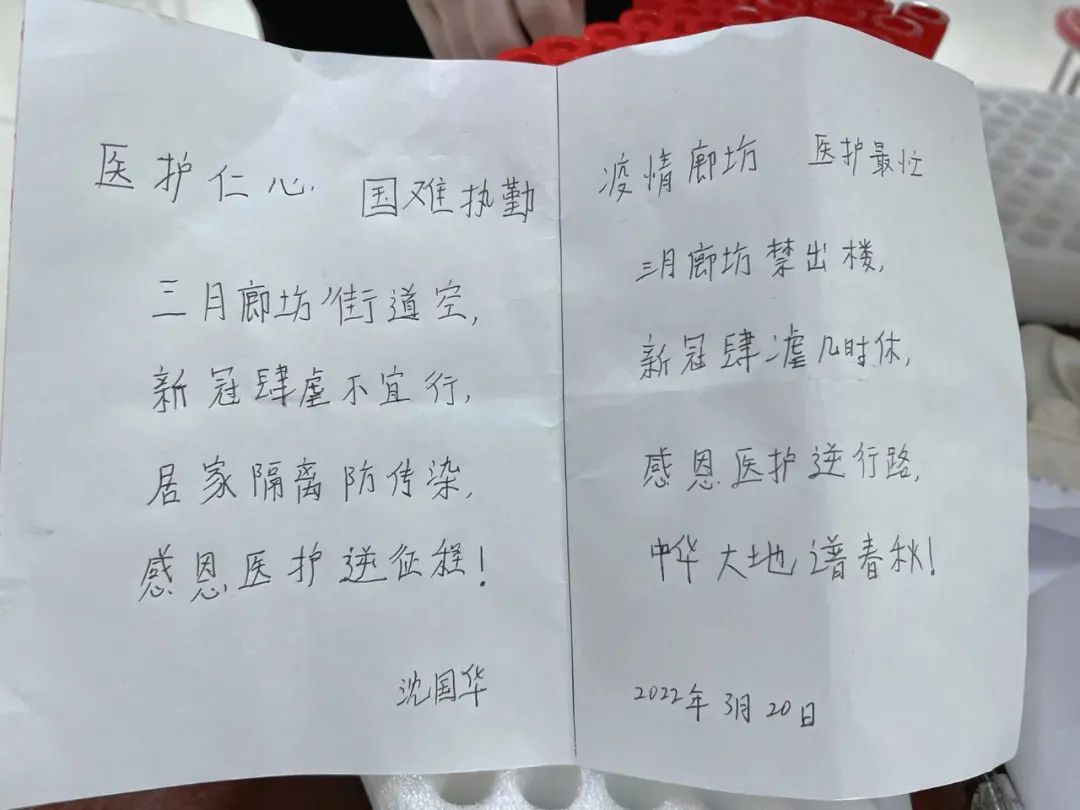 医护仁心 国难执勤
三月廊坊街道空,
新冠肆虐不宜行,
居家隔离防传染,
感恩医护逆征程!
沈国华
疫情廊坊 医护最忙
三月廊坊禁出楼,
新冠肆虐几时休,
感恩医护逆行路,
中华大地谱春秋!
2022年3月20日